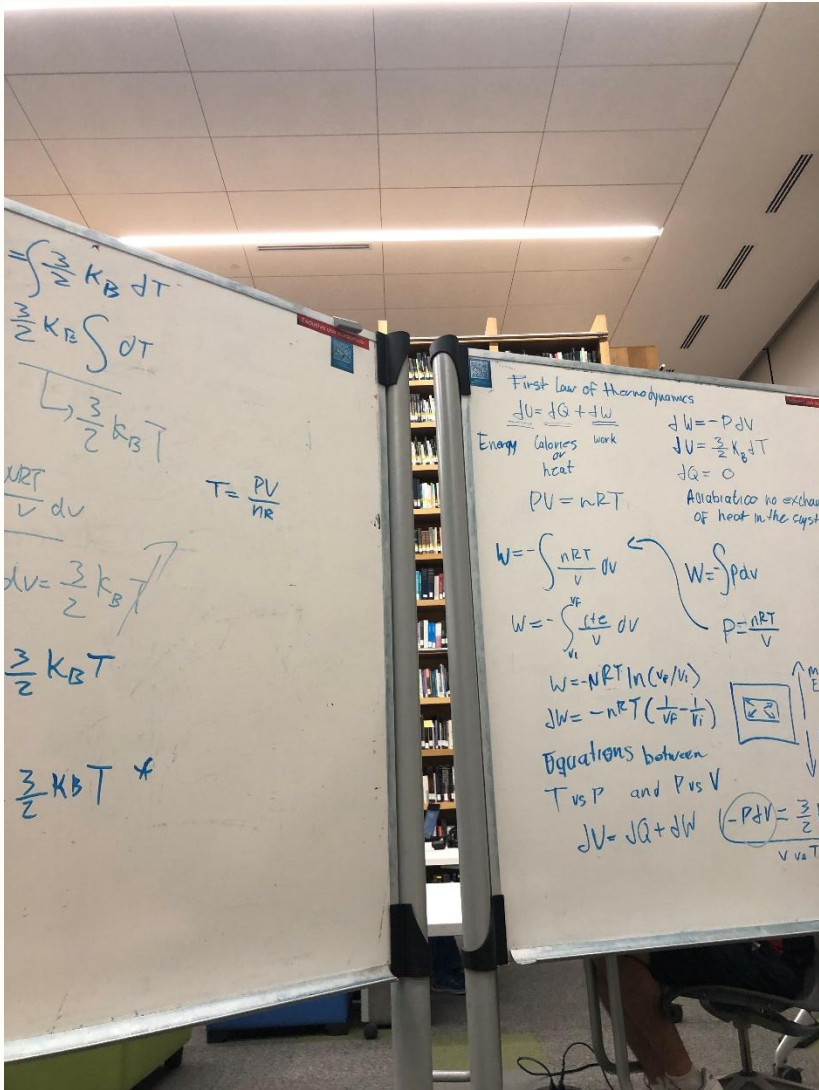 =∫ 3/2 K_B dT
3/2 K_B ∫ dT
↳ 3/2 K_B T
NRT/V dv
T = PV/nR
dv = 3/2 K_B T
3/2 K_B T
3/2 K_B T *
First Law of thermodynamics
dU = dQ + dW
Energy Calories or heat work
dW = -PdV
dU = 3/2 K_B dT
dQ = 0
PV = nRT
no exchan
of heat in the syst
W = -∫ nRT/V dv
W = -∫ Pdv
W = -∫_{Vi}^{VF} cte/V dV
P = nRT/V
W = -NRT ln(VF/Vi)
dW = -nRT(1/VF - 1/Vi)
Equations between
T vs P and P vs V
dU = dQ + dW
-PdV = 3/2
V vs T